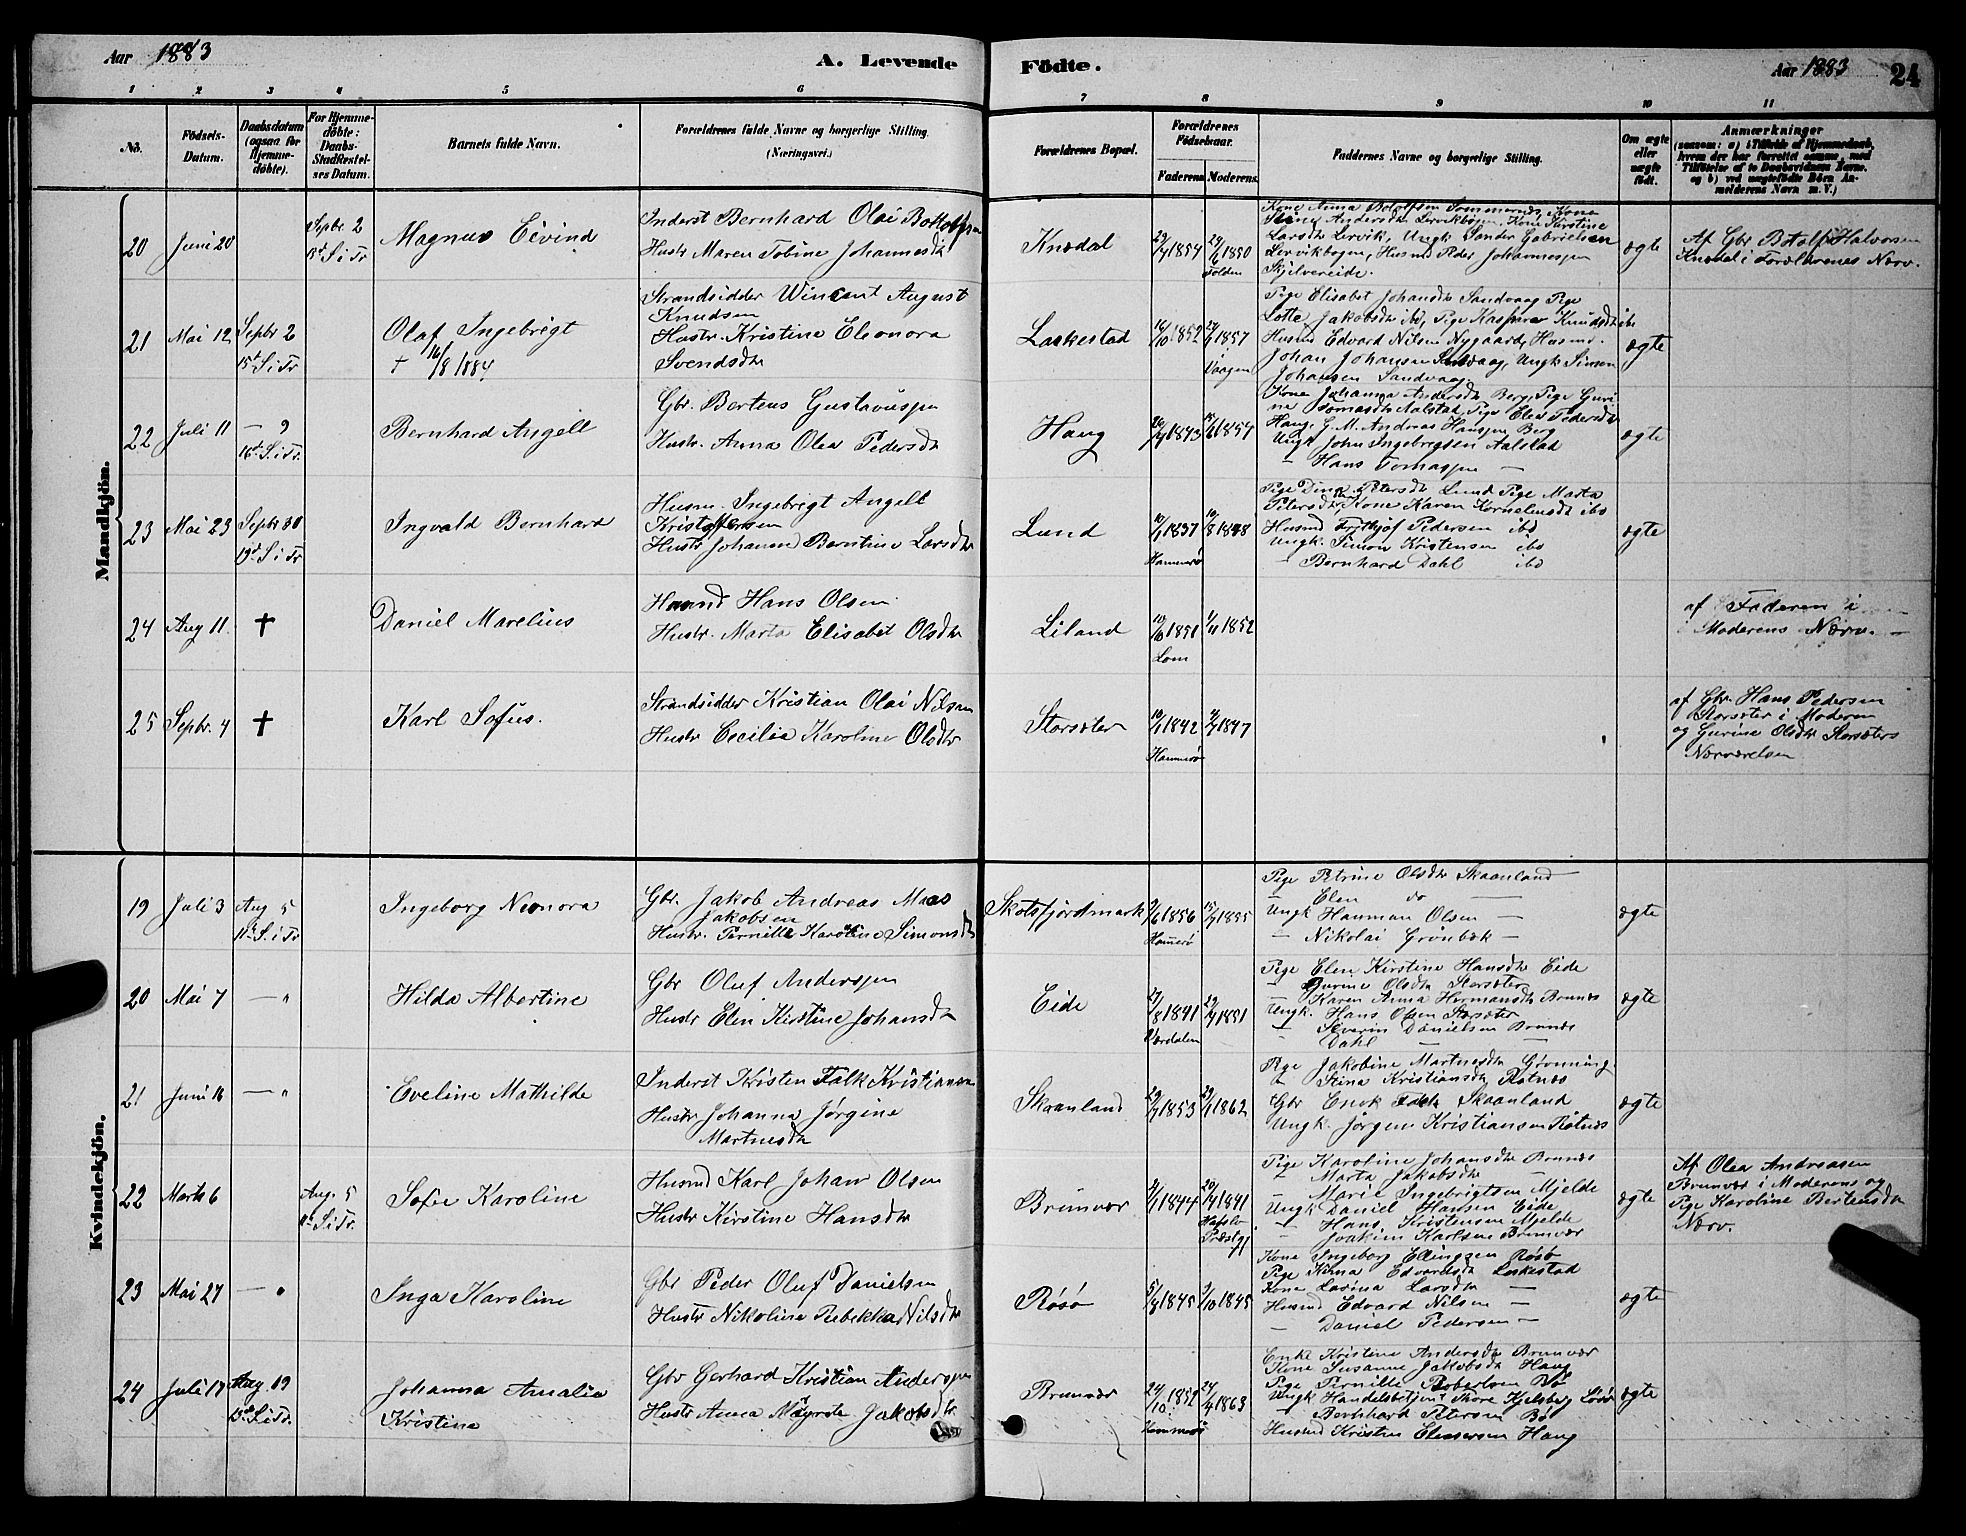 Aar 1883
A. Levende
Födte.
Aar 1883
24
1 2 3 4 5 6 7 8 9 10 11
No.
Födsels-Datum.
Daabsdatum (ogsaa for Hjemme-döbte).
For Hjemme-döbte: Daabs-Stadfæstel-ses Datum.
Barnets fulde Navn.
Forældrenes fulde Navne og borgerlige Stilling.
(Næringsvei.)
Forældrenes Bopæl.
Forældrenes Födselsaar.
Faderens. Moderens.
Faddernes Navne og borgerlige Stilling.
Om ægte eller uægte födt.
Anmærkninger
Mandkjön.
20 Juni 20
Sepbr 2
Magnus Eivind
Inderst Bernhard Olai
Hustr Maren Tobine Johannesdtr
Knædal
1854 1850
Folden
Larsdtr Lervik, Ungk Sander Gabrielsen
Lervikbogen, Husmd Peder Johannessen
Skjelvereide.
ægte
Af Gbr Botolf Halvorsen
Knædal i Forældrenes Nærv.
21 Mai 12 Sepbr 2
15d S i Tr
Olaf Ingebrigt
† 16/8 1884
Strandsidder Wincent August
Knudsen
Hustr. Kristine Eleonora
Svendsdtr
Laskestad
1852 1857
Vaagen
Pige Elisabet Johansdtr Sandvaag Pige
Lotte Jakobsdtr ibd, Pige Kaspara Knudsdtr ibd
Husmd Edvard Nilsen Nygaard, Husmd.
Johan Johansen Sandvaag, Ungk Simon
Johansen Sandvaag
ægte
22 Juli 11 — "
16d S i Tr
Bernhard Angell
Gbr. Berteus Gustavussen
Hustr. Anna Olea Pedersdtr
Haug
1843 1854
Kone Johanna Andersdtr Berg, Pige Guri-
ne Tomasdtr Aalstad, Pige Elen Pedersdtr
Haug, G. M. Andreas Hanssen Berg
Ungk John Ingebrigtsen Aalstad
— Hans Tomassen —
ægte
23 Mai 23 Sepbr 30
19d S i Tr
Ingvald Bernhard
Husm. Ingebrigt Angell
Kristoffersen
Hustr Johanna Berntine Larsdtr
Lund
1837
Hammerø
Pige Dina Petersdtr Lund Pige Marta
Petersdtr, Kone Karen Kornelinsdtr ibd
Husmd Frithjof Pedersen ibd
Ungk. Simon Kristensen ibd
— Bernhard Dahl ibd
ægte
24 Aug 11. †
Daniel Marelius
Husmd Hans Olsen
Hustr. Marta Elisabet Olsdtr
Liland
1851 1852
Lom
af Faderen i
Moderens Nærv. —
25 Sepbr. 4 †
Karl Sofus.
Strandsidder Kristian Olai Nilsen
Hustr Cecilia Karoline Olsdtr
Storsæter
1842 1847
Hammerø
af Gbr. Hans Pedersen
Storsæter i Moderen
og Gurine Olsdtr Storsæters
Nærværelsen
Kvindekjön.
19 Juli 3 Aug 5
11d S. i Tr
Ingeborg Nionora
Gbr. Jakob Andreas Maas
Jakobsen
Hustr. Pernille Karoline Simonsdtr
Skotsfjordmark
1856 1855
Hamerø
Pige Petrine Olsdtr Skaanland
— Elen do —
Ungk Hanman Olsen —
— Nikolai Grönbæk —
ægte
20 Mai 7 — "
Hilda Albertine
Gbr Oluf Anderssen
Hustr Elen Kirstine Johansdtr
Eide
1841 1851
Værdalen
Pige Elen Kirstine Hansdtr Eide
— Gurine Olsdtr Storsæter
— Karen Anna Hermansdtr Brunæs
Ungk. Hans Olsen Storsæter
— Severin Danielsen Brunæs
— Dahl —
ægte
21 Juni 16 — "
Eveline Mathilde
Inderst Kristen Falk Kristiansen
Hustr Johanna Jørgine
Martnesdtr
Skaanland
1853 1862
Pige Jakobine Martnesdtr Grønning
— Stina Kristiansdtr Rotnæs
Gbr Falk Skaanland
Ungk Jørgen Kristiansen Rotnæs
ægte
22 Marts 6
Aug. 5
11d S i Tr.
Sofie Karoline
Husmd Karl Johan Olsen
Hustr Kirstine Hansdtr
Brunvær
1844 1841
Hafslo
Præstgj
Pige Karoline Johansdtr Brunæs
— Marta Jakobsdtr —
— Marie Ingebrigtsen Mjelde
Ungk Daniel Hansen Eide
— Hans Kristensen Mjelde
— Joakim Karlsen Brunvær
ægte
Af Olea Andreasen
Brunvær i Moderens og
Pige Karoline Bertensdtr
Nærv.
23 Mai 27 — "
Inga Karoline
Gbr Peder Oluf Danielsen
Hustr Nikoline Rebekka Nilsdtr
Røsø
5/4 1845 1845
Kone Ingeborg Ellingsen Røsø
Pige Edvardsdtr Laskestad
Kone Lavina Larsdtr —
Husmd Edvard Nilsen —
— Daniel Pedersen —
ægte
24 Juli 17 Aug. 19
13d S i Tr.
Johanna Amalia
Kristina
Gbr Gerhard Kristian Anderssen
Hustr Anna Jakobsdtr
Brunvær
24/10 1852 1863
Hammerø
Enke Kristine Andersdtr Brunvær
Kone Susanne Jakobsdtr Haug
Pige Pernille Robertsen Bø
Ungk Handelsbetjent Tkore Kjelsberg
— Bernhard Petersen Bø
Husmd Kristen Haug
ægte